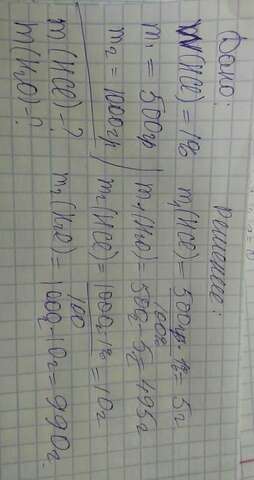 Дано:
W(HCl) = 1%
m₁ = 500гр
m₂ = 1000гр
m(HCl) - ?
m(H₂O) = ?
Решение:
m₁(HCl) = 500гр · 1% / 100% = 5г
m₁(H₂O) = 500г - 5г = 495г
m₂(HCl) = 1000г · 1% / 100 = 10г
m₂(H₂O) = 1000г - 10г = 990г.